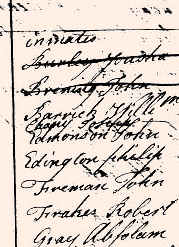 inmates
Burley Judha
Brening John
Barrich Will m
Edmonson John
Edington philip
Fireman John
Fraher Robert
Gray Absolam